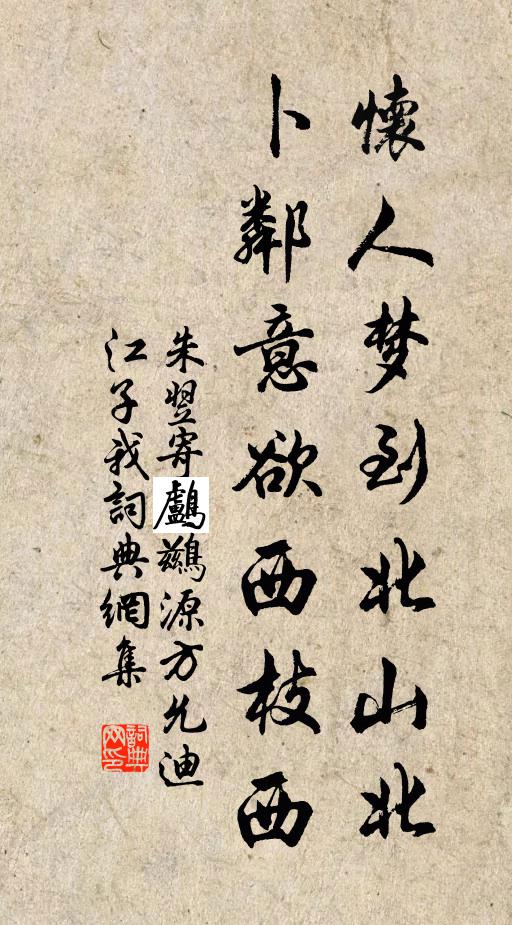 懷人梦到北山北
卜鄰意欲西枝西
朱翌寄鸕鷀源方允迪
江子我詞典網集
詞典网印